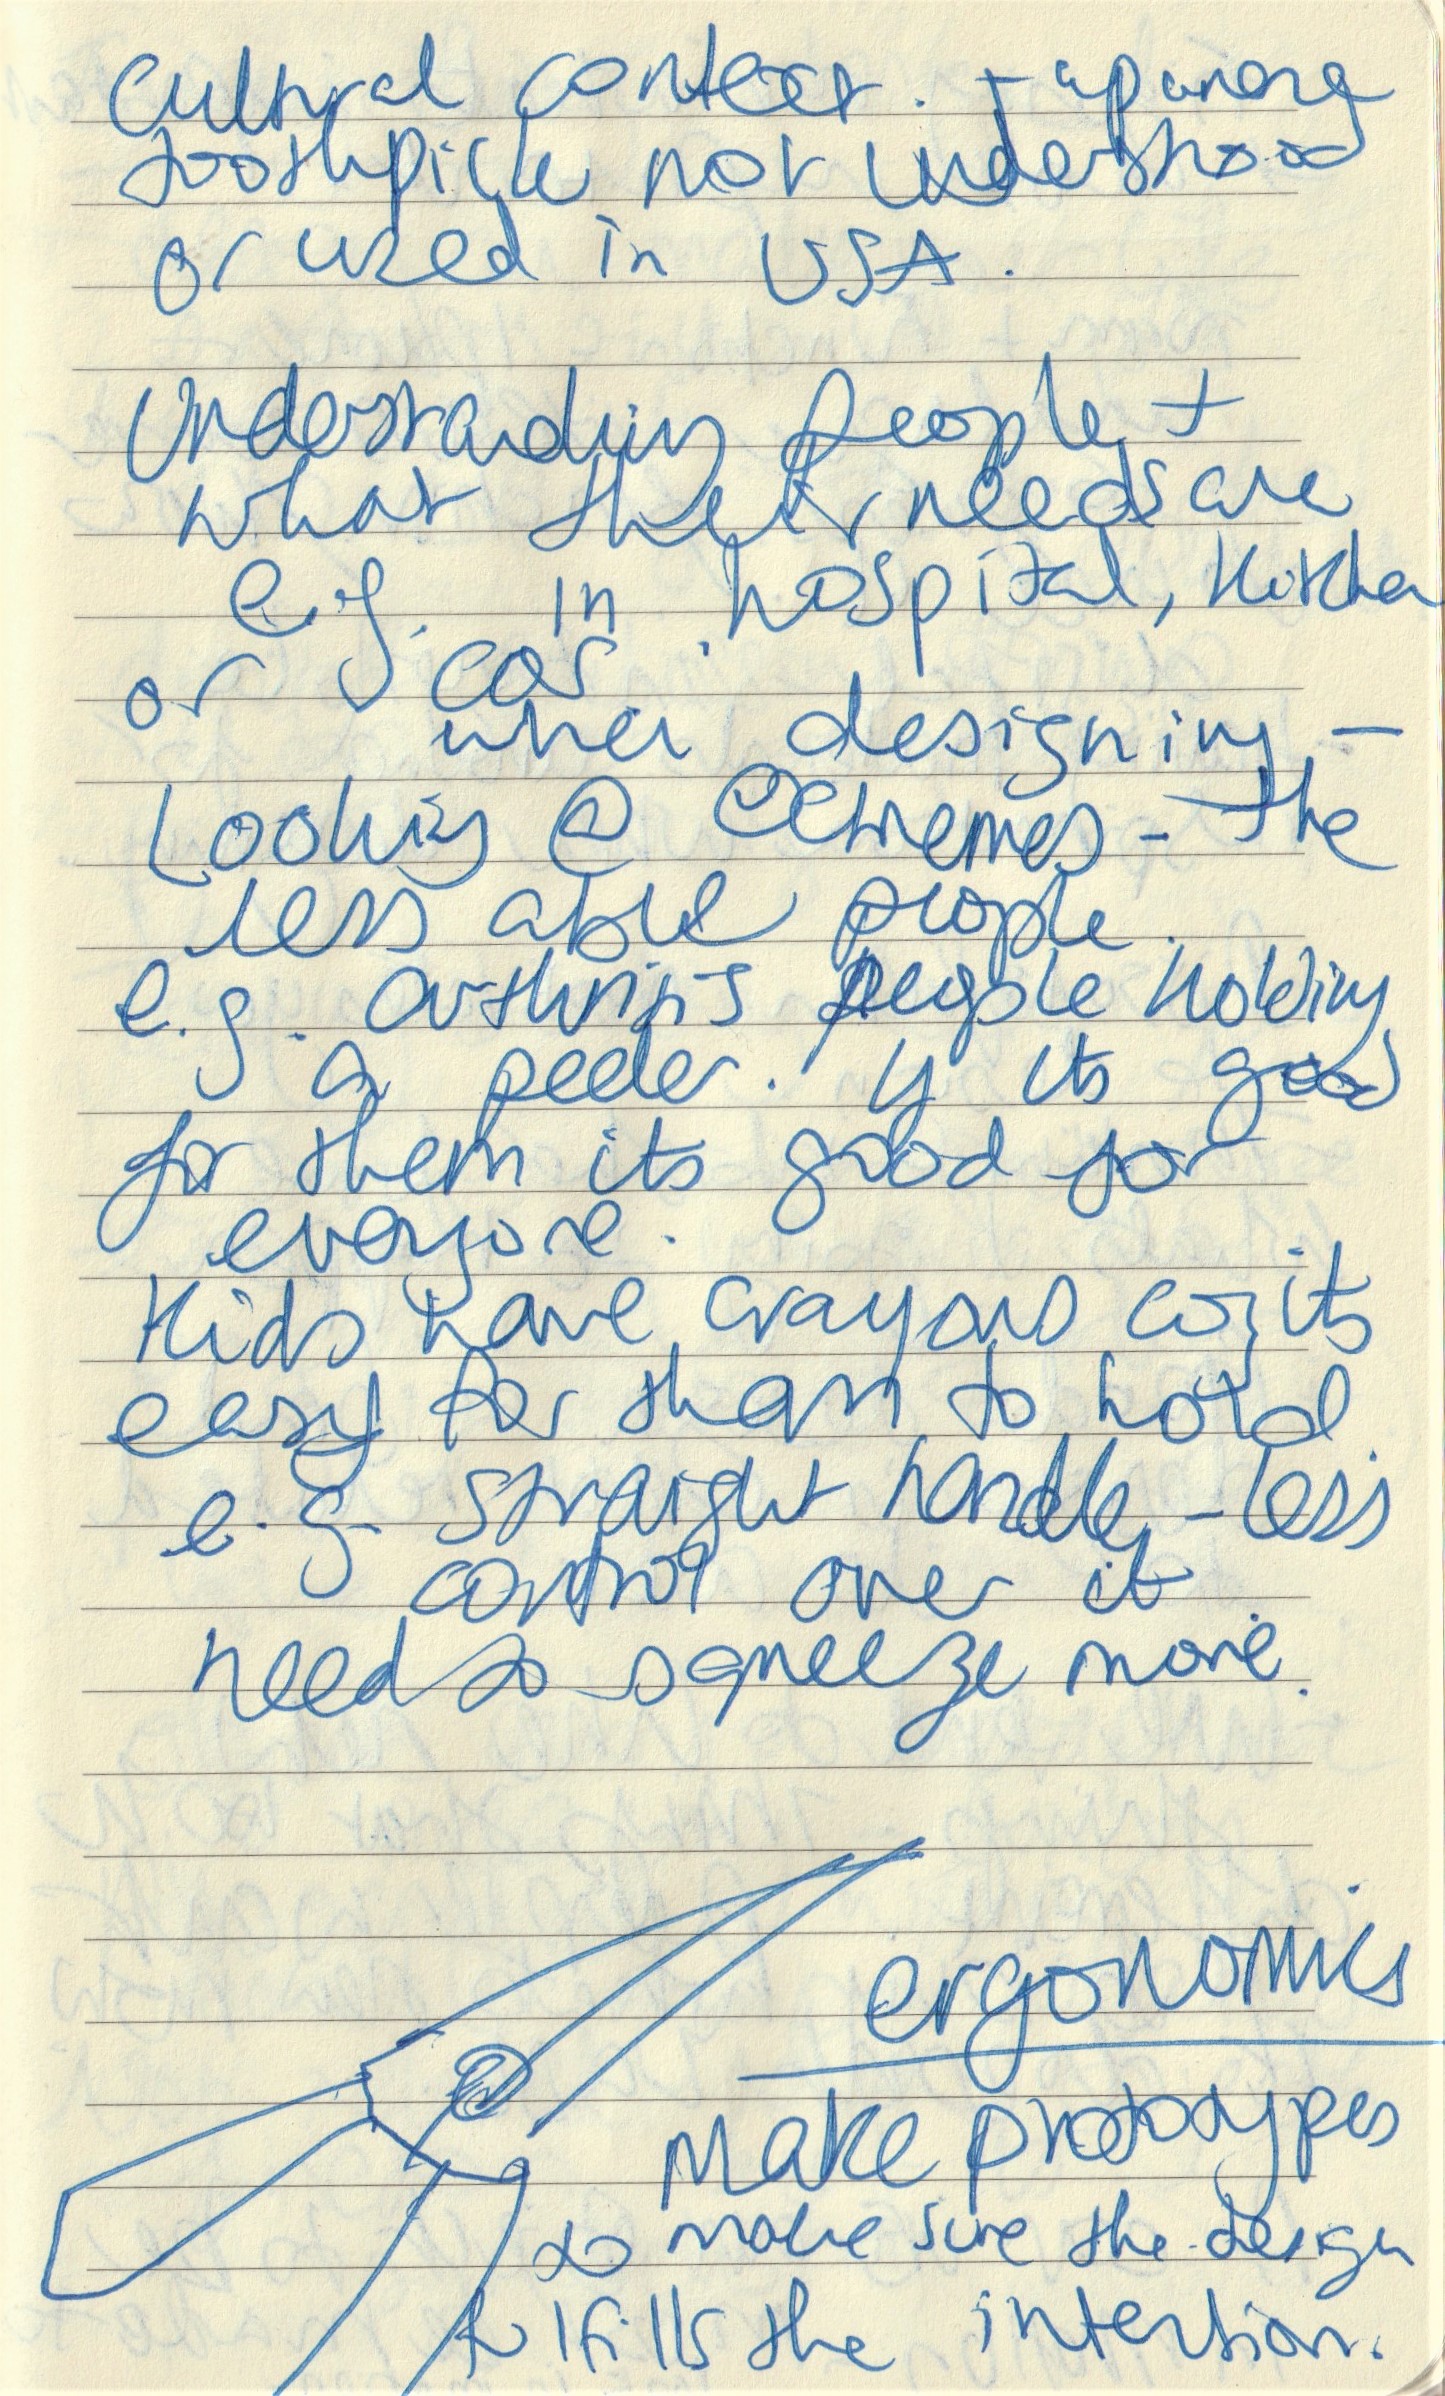 Cultural context. Japanese
toothpick not understood
or used in USA.
Understanding people +
what their needs are
e.g. in hospital, kitchen
or car.
when designing -
Looking @ extremes - the
less able people.
e.g. arthritis people holding
a peeler. If its good
for them its good for
everyone.
Kids have crayons coz its
easy for them to hold.
e.g. straight handle - less
control over it
need to squeeze more.
ergonomics
Make prototypes
to make sure the design
fulfills the intention.